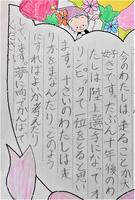 今のわたしは、走ることが大
好きです。たぶん十年後のわ
たしは陸上選手になってオ
リンピックで一位をとると思い
ます。十さいのわたしは、走
り方をまなんだり、どのよう
にすればよいか考えたり
しています。夢に向けがんば